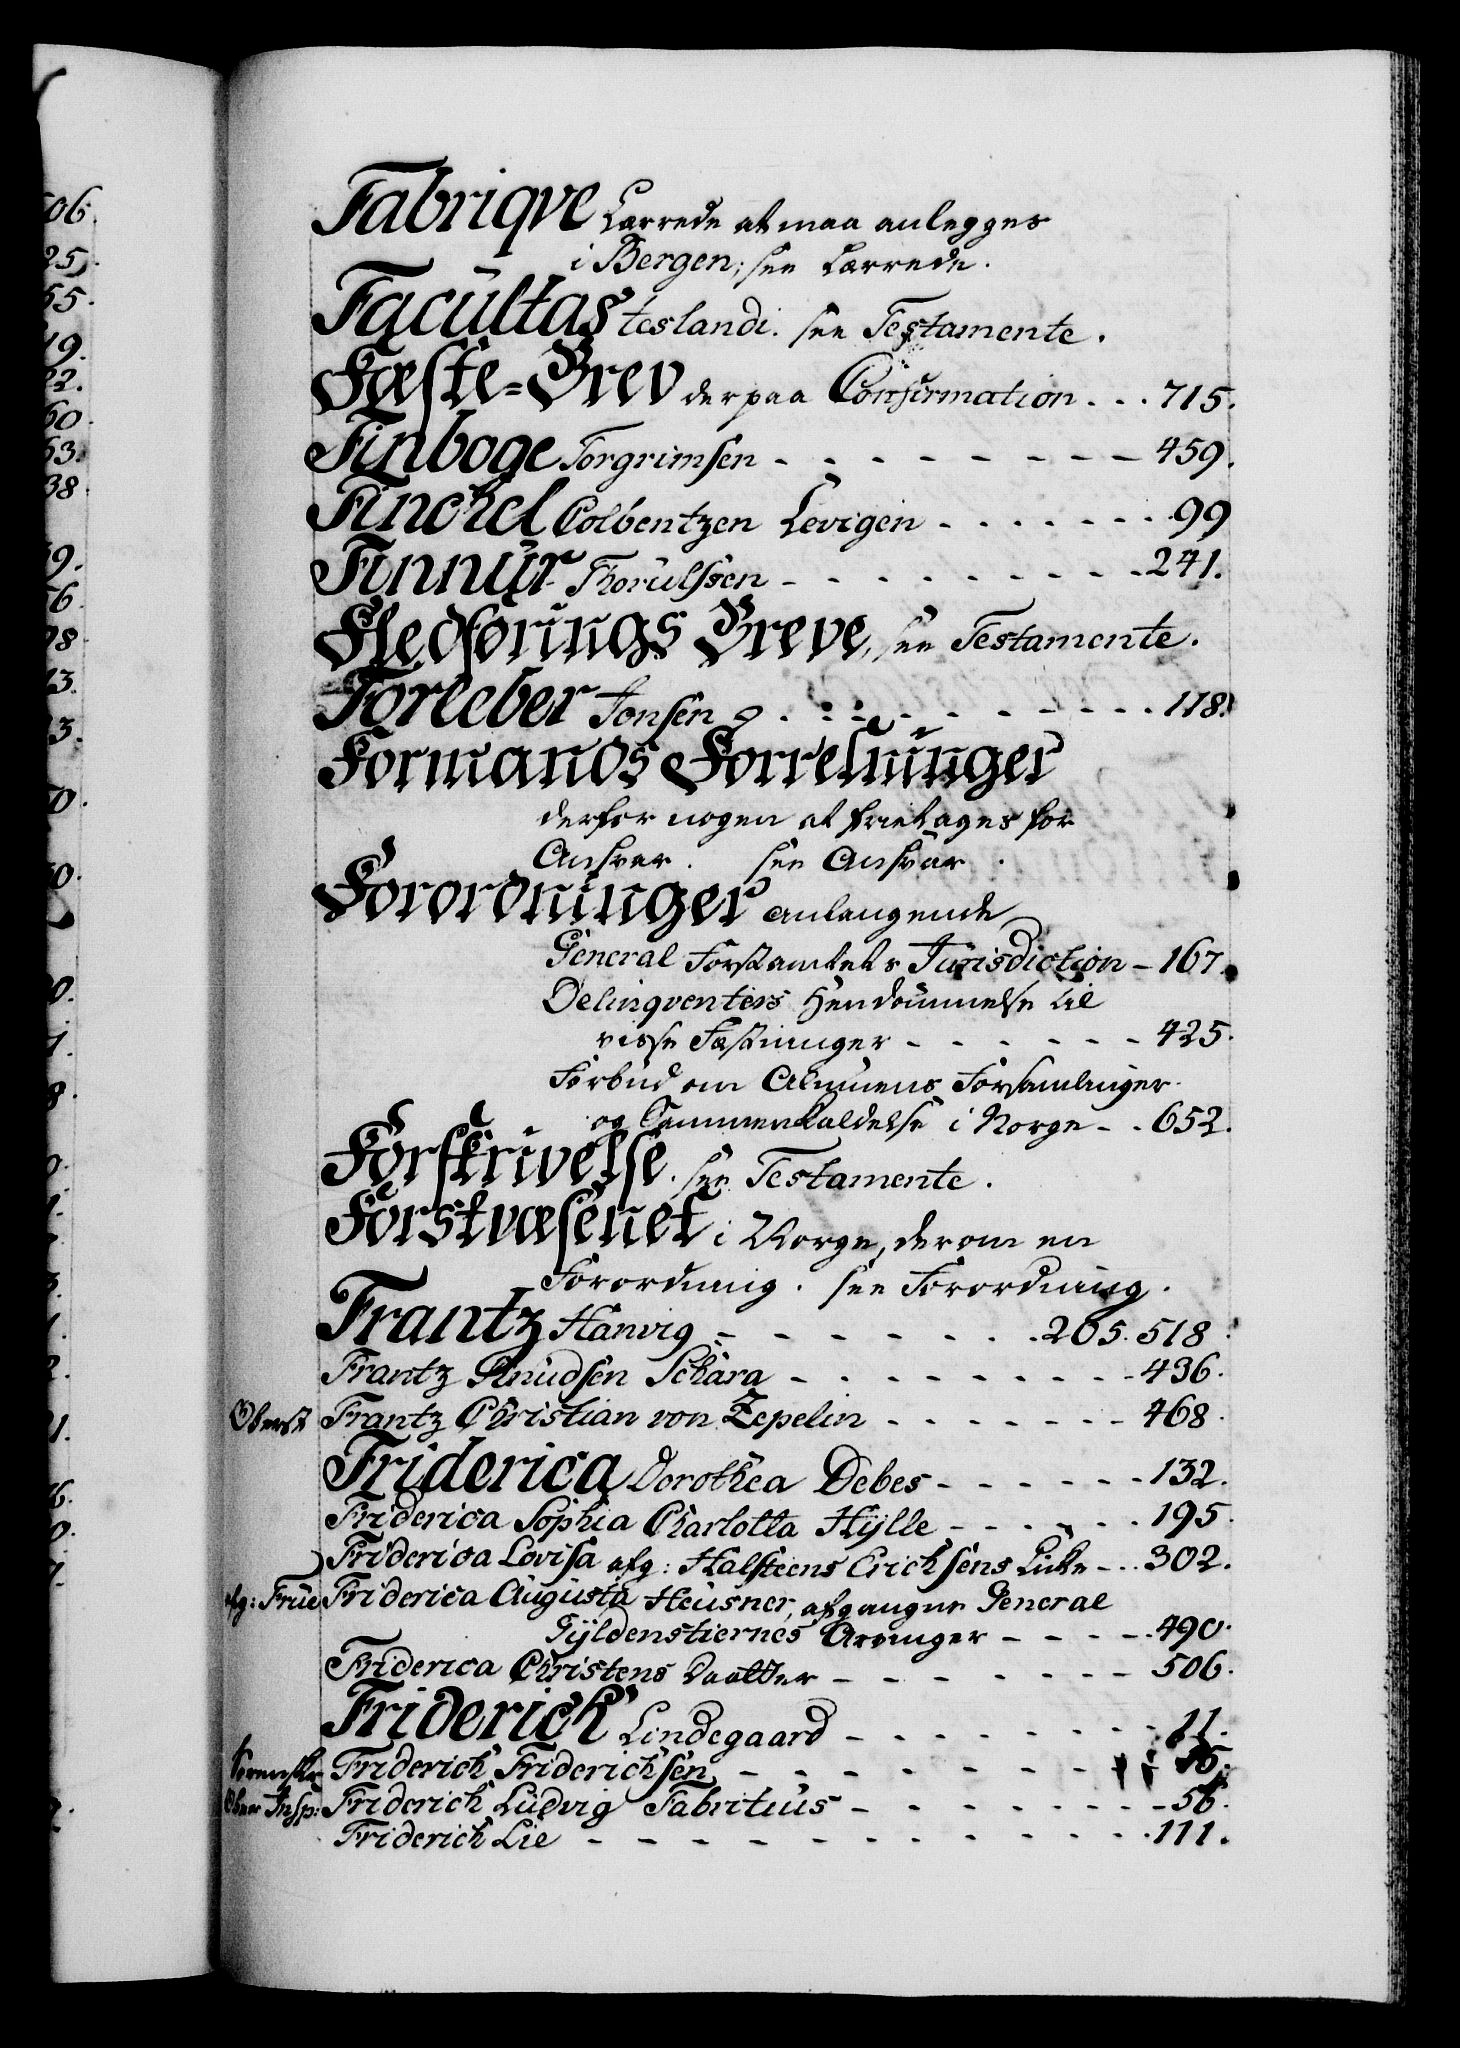 Fabriqve Lærrede at maa anlegges
i Bergen; see Lærrede.
Facultas testandi. see Testamente.
Fæste=Brev derpaa Confirmation . . . 715.
Finboge Torgrimsen - - - - - - - - 459.
Finckel Colbentzen Levigen . . . . . . . 99
Finnur Thorulssen - - - - - - - - - 241.
Fledførings Breve, see Testamente.
Foreeber Jonsen . . . . . . . . . . 118.
Formands Forretninger
derfor nogen at fritages for
Ansvar. see Ansvar.
Forordninger anlangende
General Forstamtets Jurisdiction - 167.
Delinqventers Hendømmelse til
visse Fæstninger - - - - - - 425.
Forbud om Almuens Forsamlinger
og Sammenkaldelse i Norge - - 652.
Forskrivelse. see Testamente.
Forstvæsenet i Norge, derom en
Forordning. see Forordning.
Frantz Hanvig - - - - - - . . 205. 518.
Frantz Knudsen Schara - - - - - - - - 436.
Oberst Frantz Christian von Zepelin - - - - - - - 468.
Friderica Dorothea Debes - - - - - - 132.
Friderica Sophia Charlotta Hylle - - - - - 195.
Friderica Lovisa afg: Halsteens Erichsens - . . 302.
afg: Frue Friderica Augusta Heusner, afgangne General
Gyldenstiernes Arvinger - - - - 490.
Friderica Christens Daatter - - - - - - - 506.
Friderich Lindegaard - - - - - - - - 11.
Friderich Friderichsen - - - - - - - -
Ober Insp: Friderich Ludvig Fabritius - - - - - - - - 56.
Friderich Lie - - - - - - - - - - - - 111.